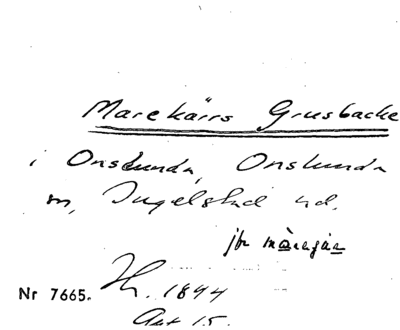 Marekärrs Grusbacke
i Onslunda, Onslunda
m, Ingelstad hd.
jfr
Nr 7665. 1844
Art 15.